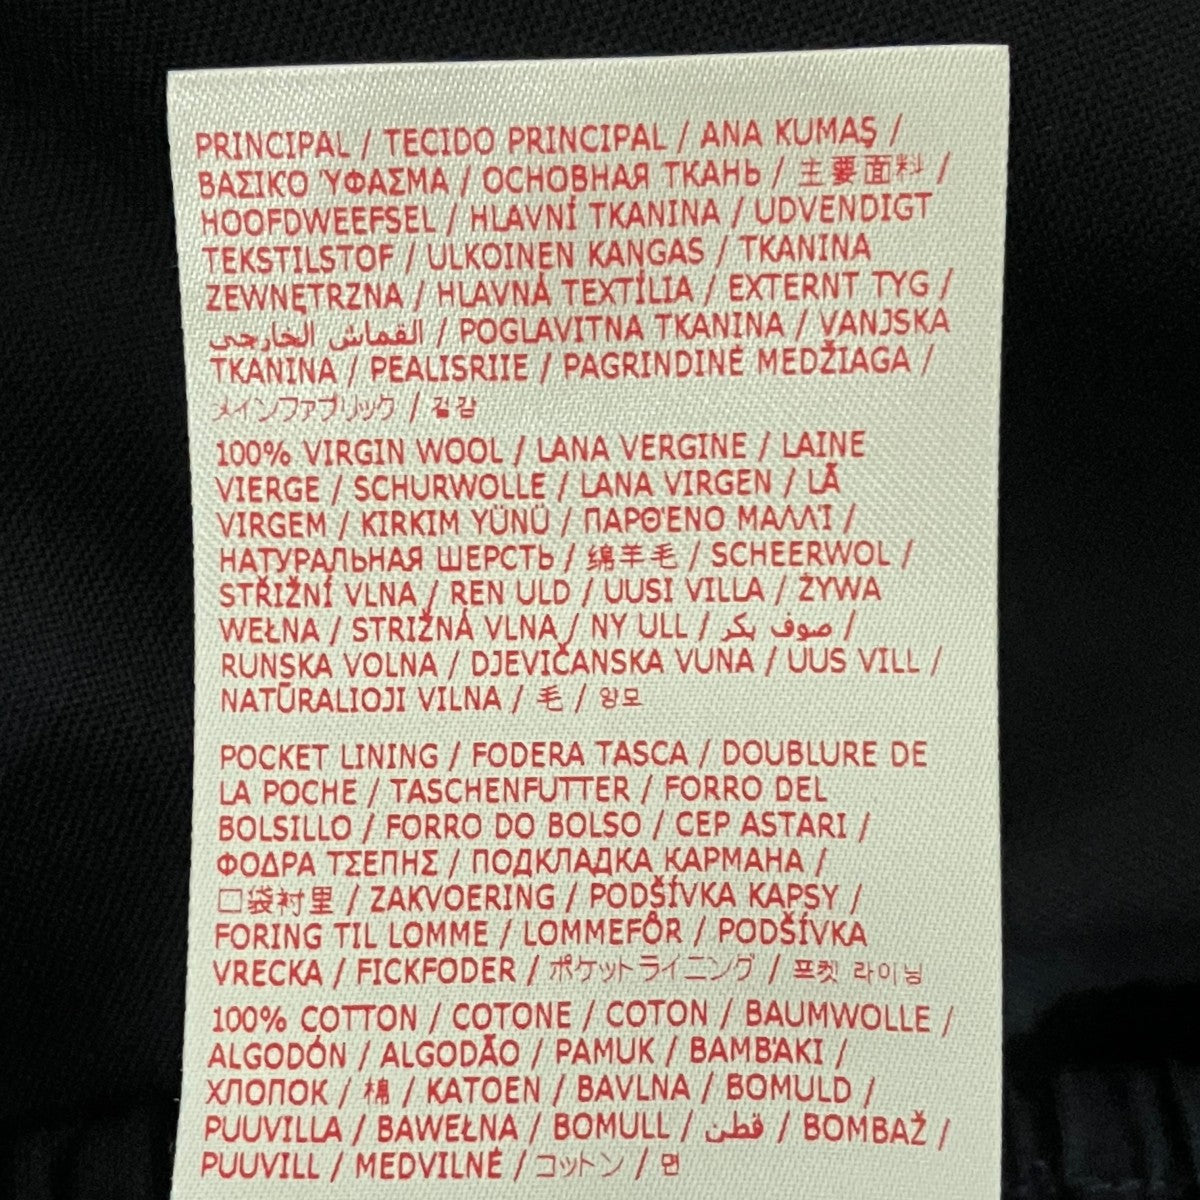 PRINCIPAL / TECIDO PRINCIPAL / ANA KUMAŞ /
ΒΑΣΙΚΌ ΎΦΑΣΜΑ / ОСНОВНАЯ ТКАНЬ / 主要面料 /
HOOFDWEEFSEL / HLAVNÍ TKANINA / UDVENDIGT
TEKSTILSTOF / ULKOINEN KANGAS / TKANINA
ZEWNĘTRZNA / HLAVNÁ TEXTÍLIA / EXTERNT TYG /
القماش الخارجي / POGLAVITNA TKANINA / VANJSKA
TKANINA / PEALISRIIE / PAGRINDINĖ MEDŽIAGA /
メインファブリック / 겉감
100% VIRGIN WOOL / LANA VERGINE / LAINE
VIERGE / SCHURWOLLE / LANA VIRGEN / LÃ
VIRGEM / KIRKIM YÜNÜ / ΠΑΡΘΈΝΟ ΜΑΛΛΊ /
НАТУРАЛЬНАЯ ШЕРСТЬ / 绵羊毛 / SCHEERWOL /
STŘIŽNÍ VLNA / REN ULD / UUSI VILLA / ŻYWA
WEŁNA / STRIŽNÁ VLNA / NY ULL / صوف بكر /
RUNSKA VOLNA / DJEVIČANSKA VUNA / UUS VILL /
NATŪRALIOJI VILNA / 毛 / 양모
POCKET LINING / FODERA TASCA / DOUBLURE DE
LA POCHE / TASCHENFUTTER / FORRO DEL
BOLSILLO / FORRO DO BOLSO / CEP ASTARI /
ΦΟΔΡΑ ΤΣΕΠΗΣ / ПОДКЛАДКА КАРМАНА /
口袋衬里 / ZAKVOERING / PODŠÍVKA KAPSY /
FORING TIL LOMME / LOMMEFÔR / PODŠÍVKA
VRECKA / FICKFODER / ポケットライニング / 포켓 라이닝
100% COTTON / COTONE / COTON / BAUMWOLLE /
ALGODÓN / ALGODÃO / PAMUK / ΒΑΜΒΆΚΙ /
ХЛОПОК / 棉 / KATOEN / BAVLNA / BOMULD /
PUUVILLA / BAWEŁNA / BOMULL / قطن / BOMBAŽ /
PUUVILL / MEDVILNĖ / コットン / 면